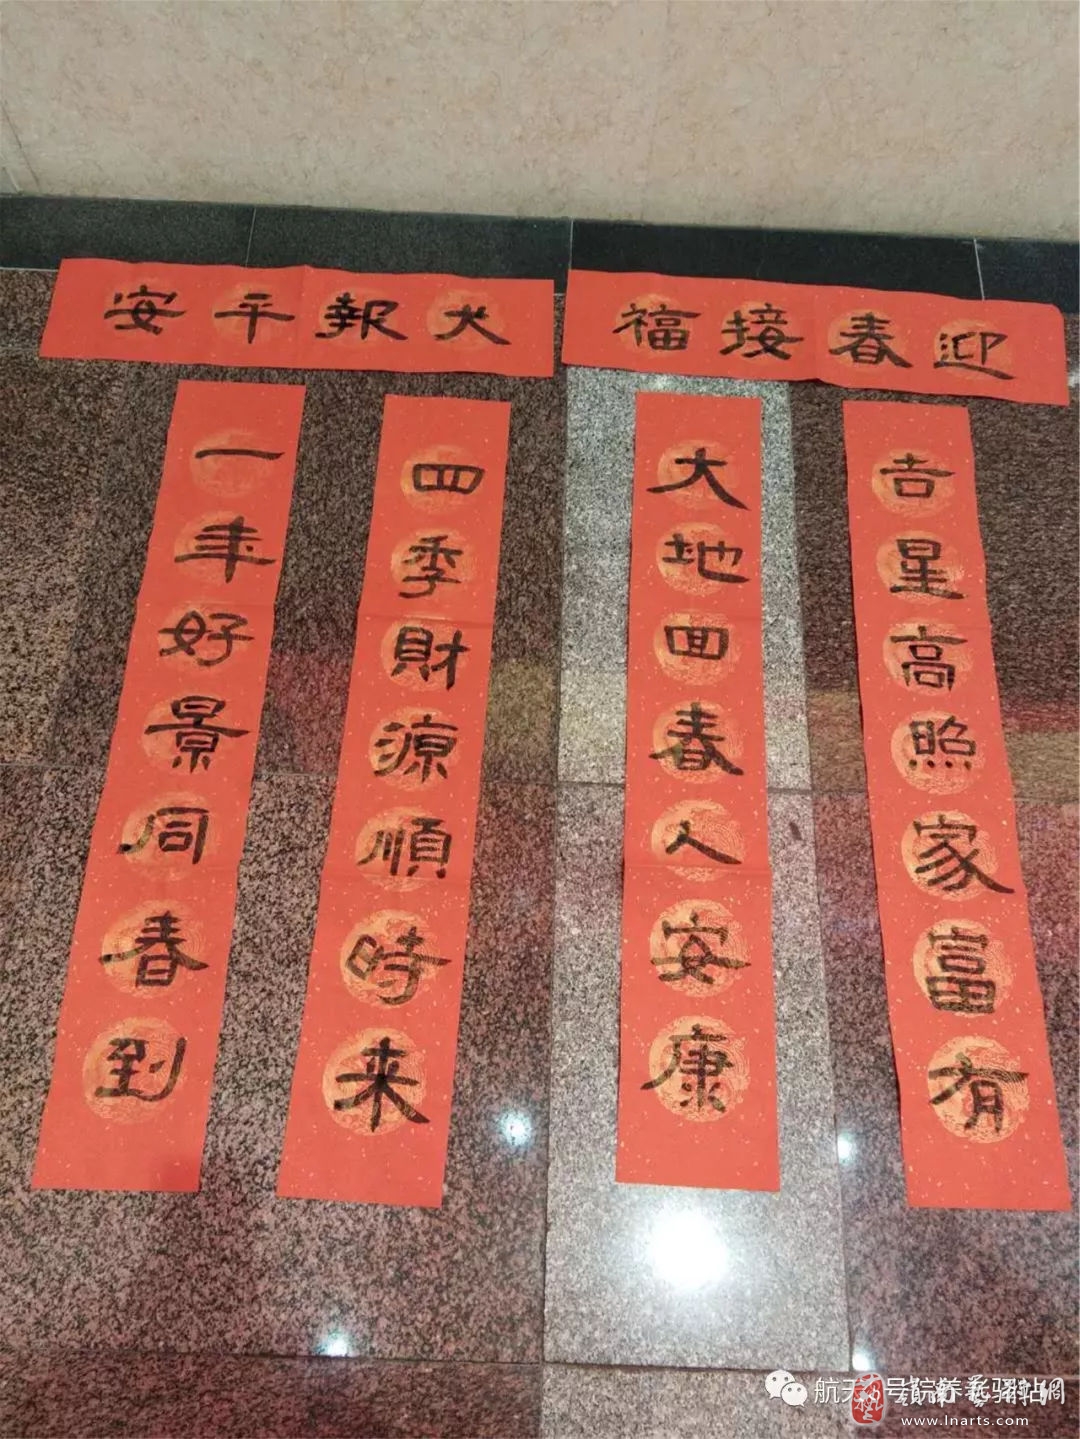 迎春接福
吉星高照家富有
大地回春人安康
犬報平安
四季財源順時来
一年好景同春到
航天 号院养老驿站
www.lnarts.com